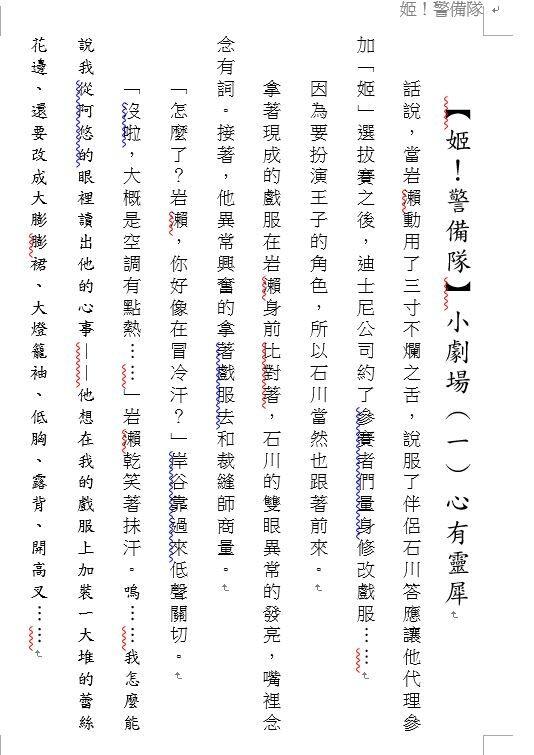 姬！警備隊
【姬！警備隊】小劇場（一） 心有靈犀
話說，當岩瀨動用了三寸不爛之舌，說服了伴侶石川答應讓他代理參
加「姬」選拔賽之後，迪士尼公司約了參賽者們量身修改戲服……
因為要扮演王子的角色，所以石川當然也跟著前來。
拿著現成的戲服在岩瀨身前比對著，石川的雙眼異常的發亮，嘴裡念
念有詞。接著，他異常興奮的拿著戲服去和裁縫師商量。
「怎麼了？岩瀨，你好像在冒冷汗？」岸谷靠過來低聲關切。
「沒啦，大概是空調有點熱……」岩瀨乾笑著抹汗。嗚……我怎麼能
說我從阿悠的眼裡讀出他的心事——他想在我的戲服上加裝一大堆的蕾絲
花邊、還要改成大膨膨裙、大燈籠袖、低胸、露背、開高叉……